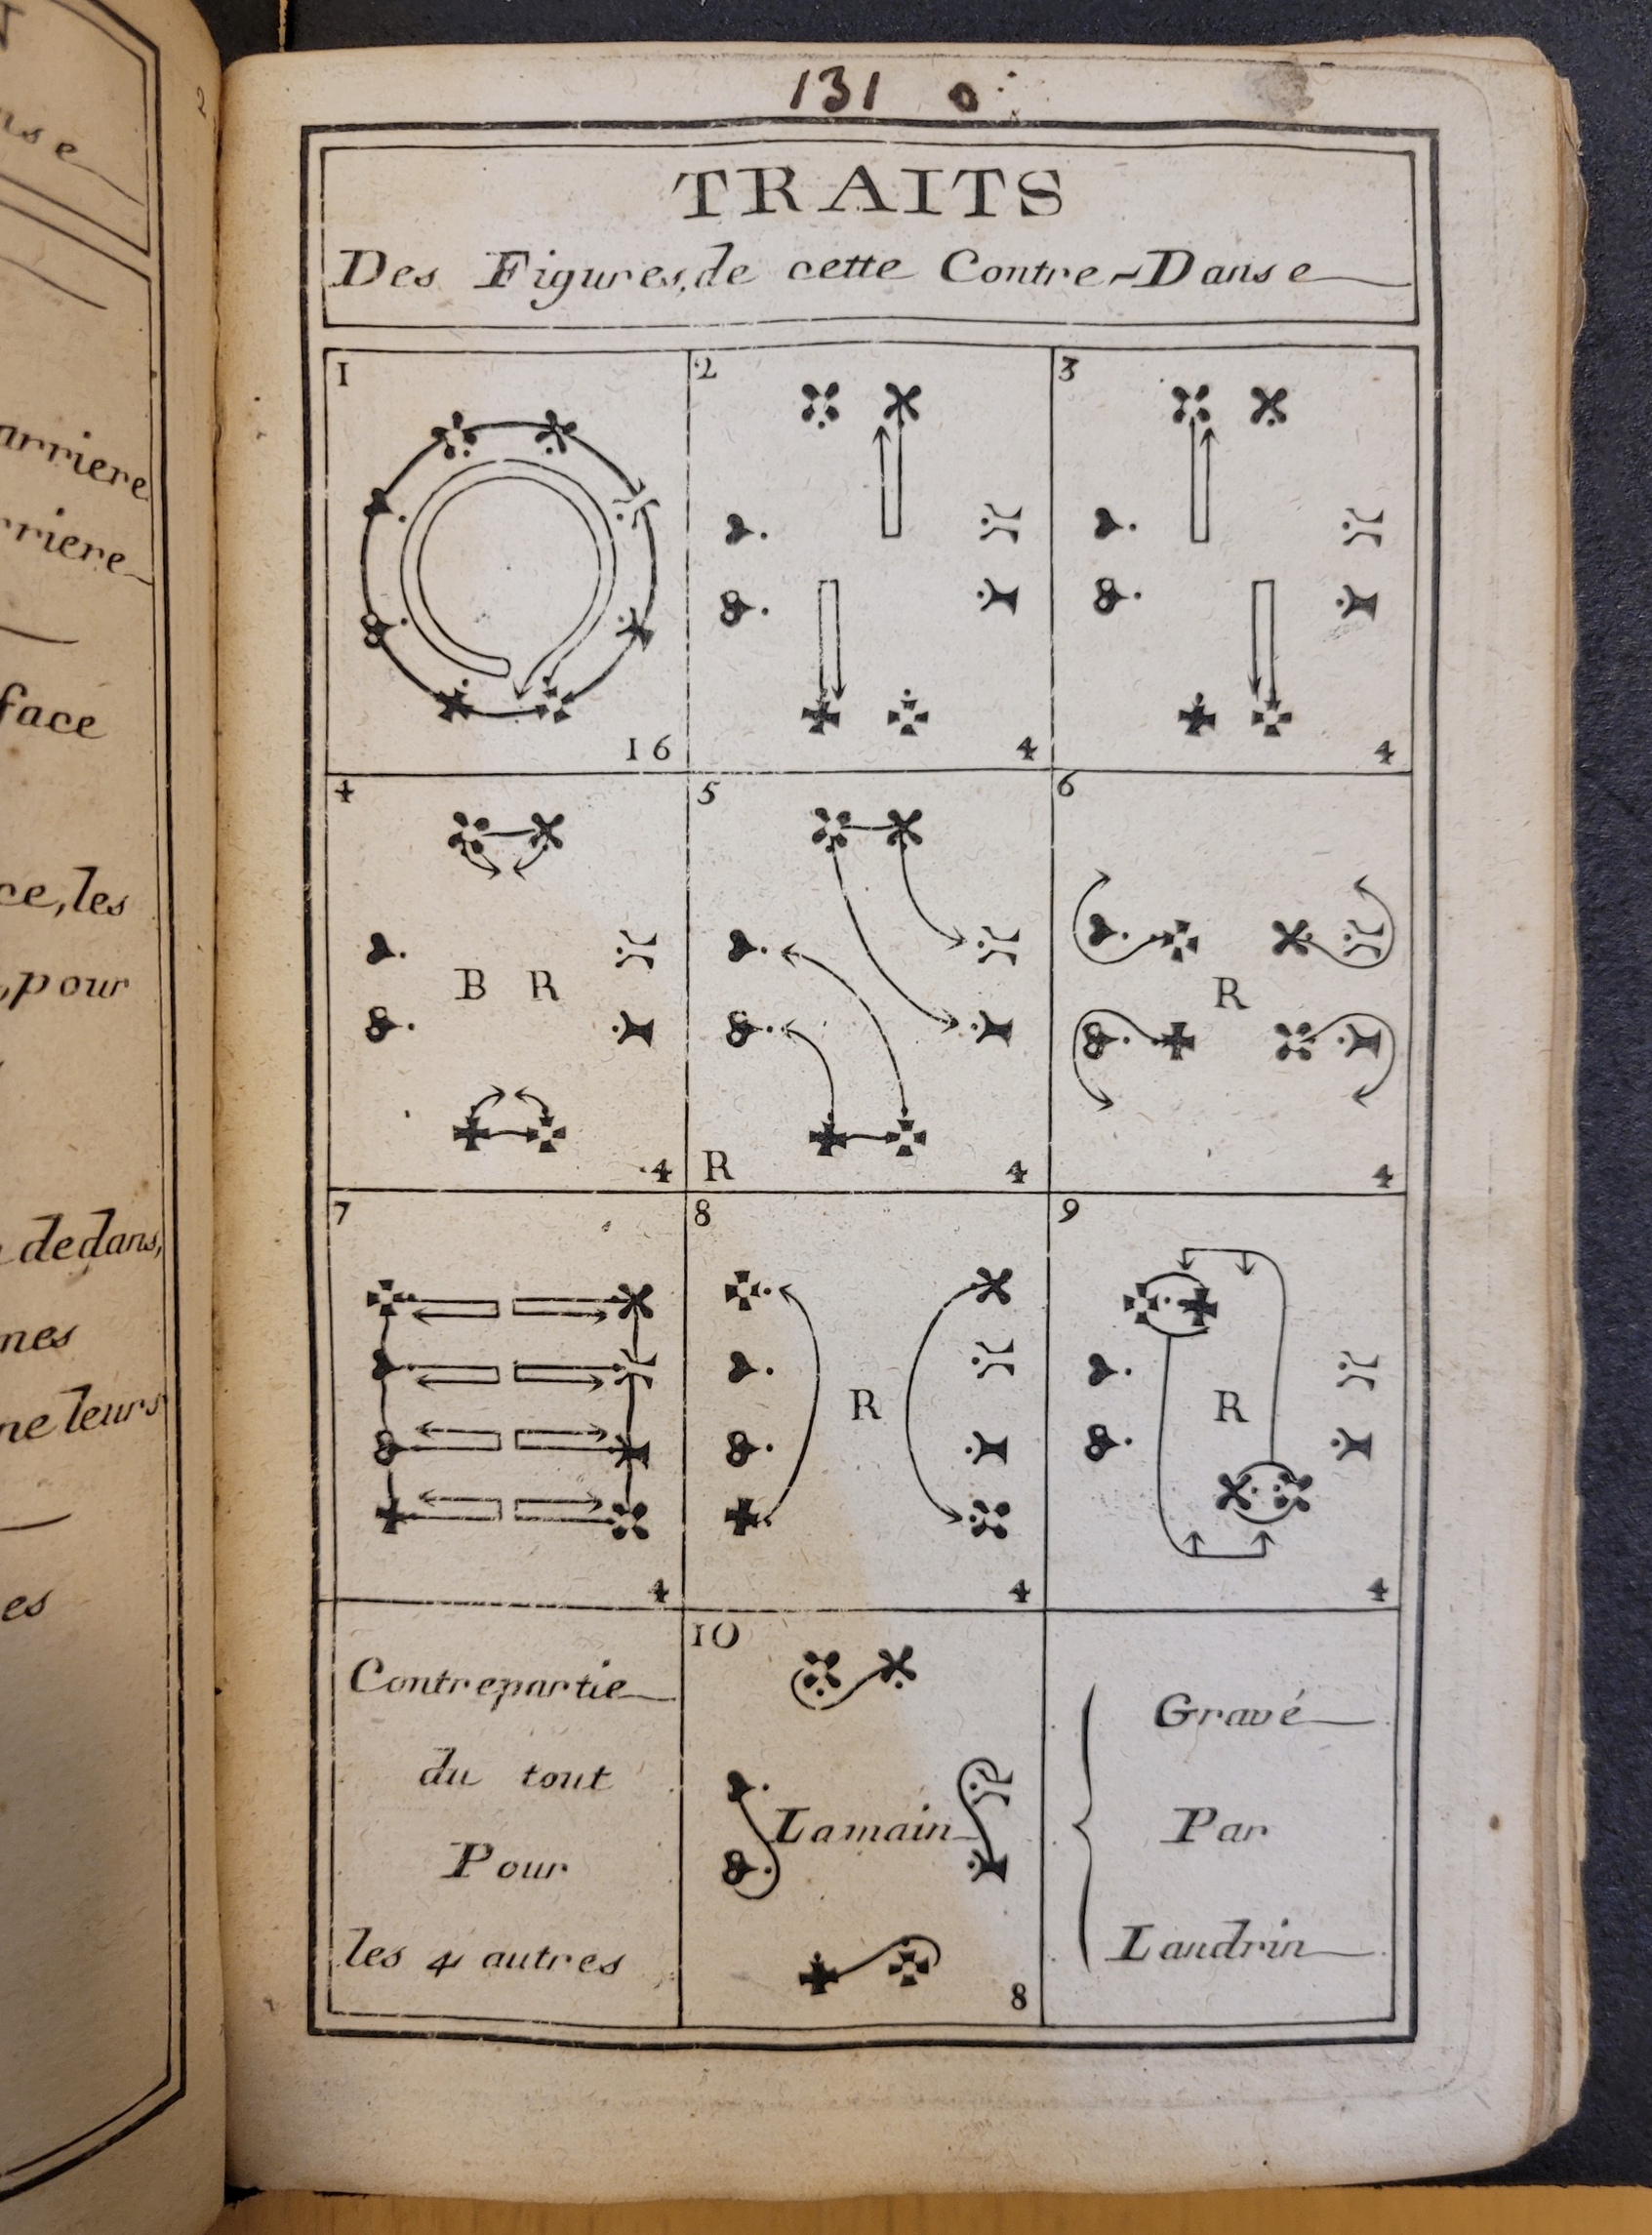 2
nse
arriere
rriere
face
ce, les
, pour
dedans,
nes
ne leurs
es
131 o
TRAITS
Des Figures, de cette Contre-Danse
1
16
2
4
3
4
4
B R
4
5
R
4
6
R
4
7
4
8
R
4
9
R
4
Contrepartie
du tout
Pour
les 4 autres
10
Lamain
8
Gravé
Par
Landrin